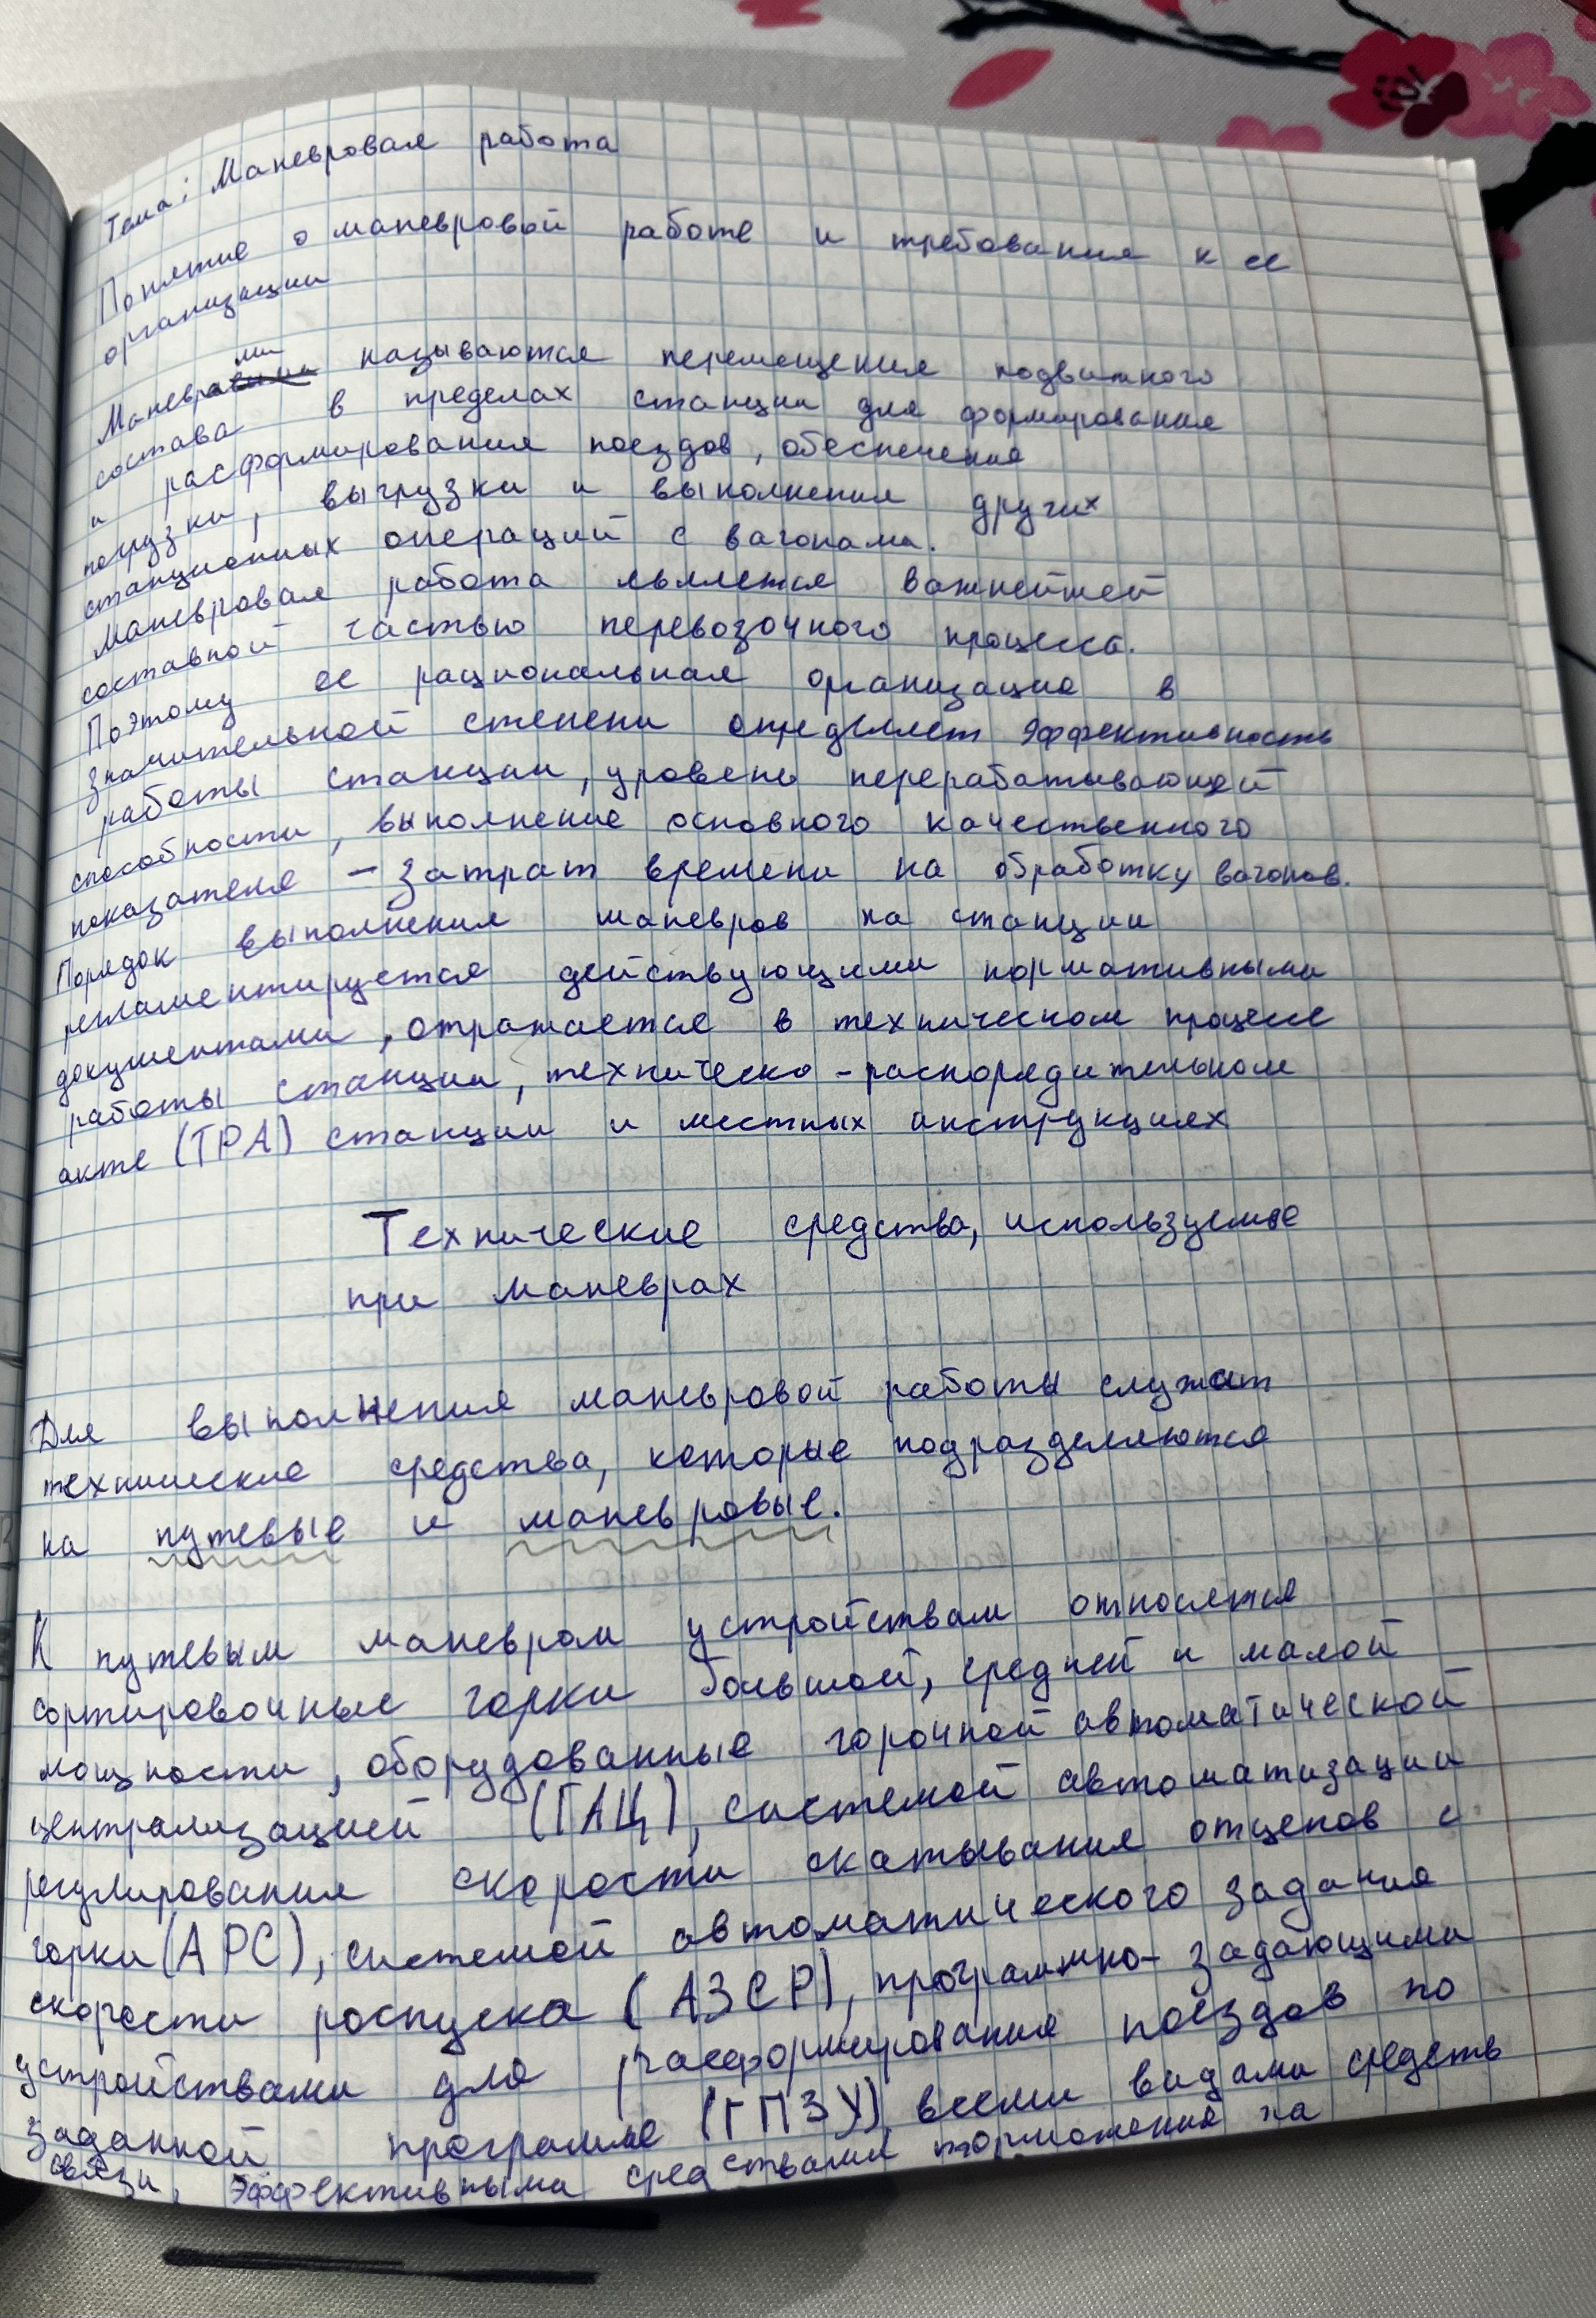 Тема: Маневровая работа
Понятие о маневровой работе и требования к ее
организации
Маневрами называются перемещения подвижного
состава в пределах станции для формирования
и расформирования поездов, обеспечения
погрузки, выгрузки и выполнения других
станционных операций с вагонами.
Маневровая работа является важнейшей
составной частью перевозочного процесса.
Поэтому ее рациональная организация в
значительной степени определяет эффективность
работы станции, уровень перерабатывающей
способности, выполнение основного качественного
показателя – затрат времени на обработку вагонов.
Порядок выполнения маневров на станции
регламентируется действующими нормативными
документами, отражается в техническом процессе
работы станции, техническо-распорядительном
акте (ТРА) станции и местных инструкциях
Технические средства, используемые
при маневрах
Для выполнения маневровой работы служат
технические средства, которые подразделяются
на путевые и маневровые.
К путевым маневром устройствам относятся
сортировочные горки большой, средней и малой
мощности, оборудованные горочной автоматической
централизацией (ГАЦ), системой автоматизации
регулирования скорости скатывания отцепов с
горки (АРС), системой автоматического задания
скорости роспуска (АЗСР), программно-задающими
устройствами для расформирования поездов по
заданной программе (ГПЗУ), всеми видами средств
связи, эффективными средствами торможения на